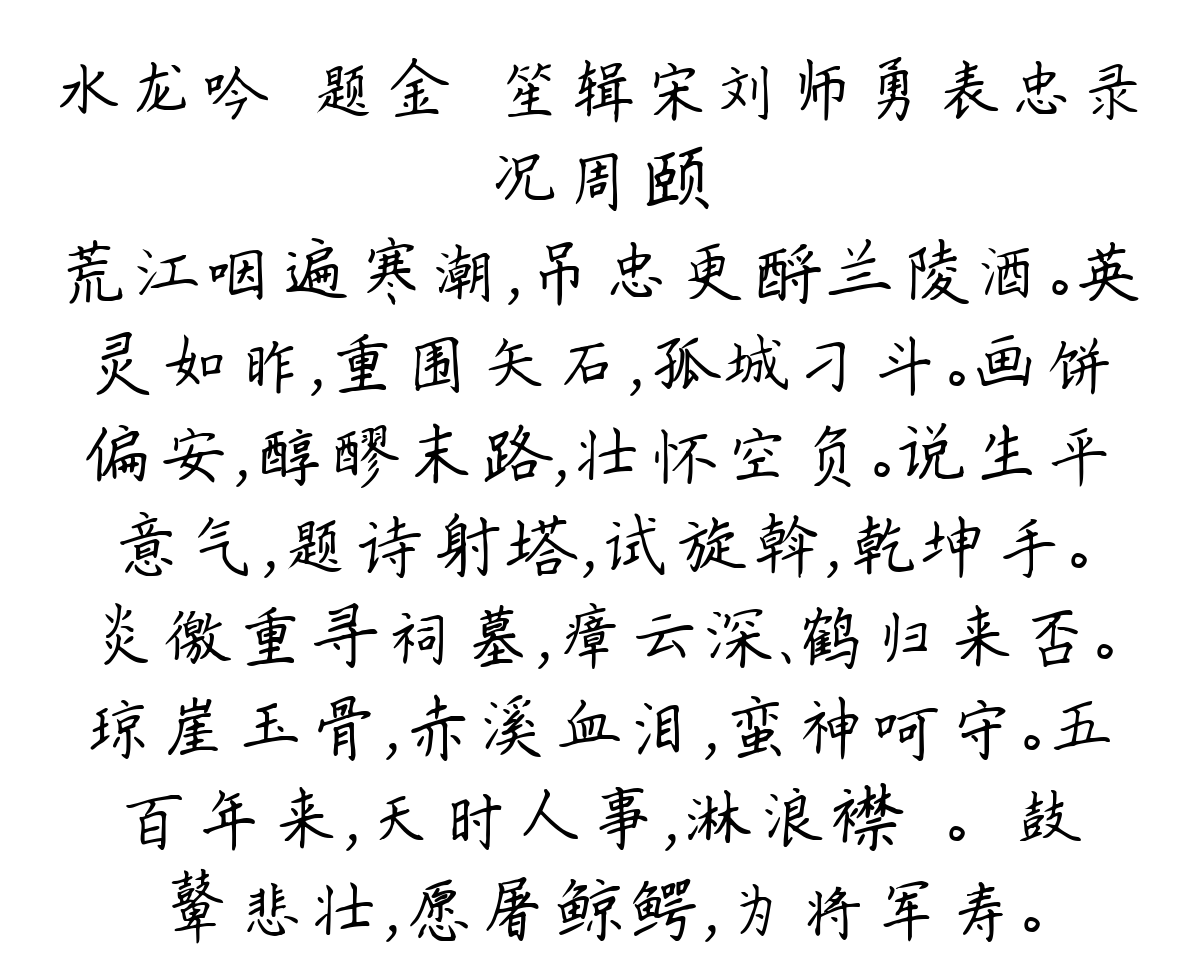 水龙吟 题金 笙辑宋刘师勇表忠录
况周颐
荒江咽遍寒潮,吊忠更酹兰陵酒。英
灵如昨,重围矢石,孤城刁斗。画饼
偏安,醇醪末路,壮怀空负。说生平
意气,题诗射塔,试旋斡,乾坤手。
炎徼重寻祠墓,瘴云深、鹤归来否。
琼崖玉骨,赤溪血泪,蛮神呵守。五
百年来,天时人事,淋浪襟 。鼓
鼙悲壮,愿屠鲸鳄,为将军寿。